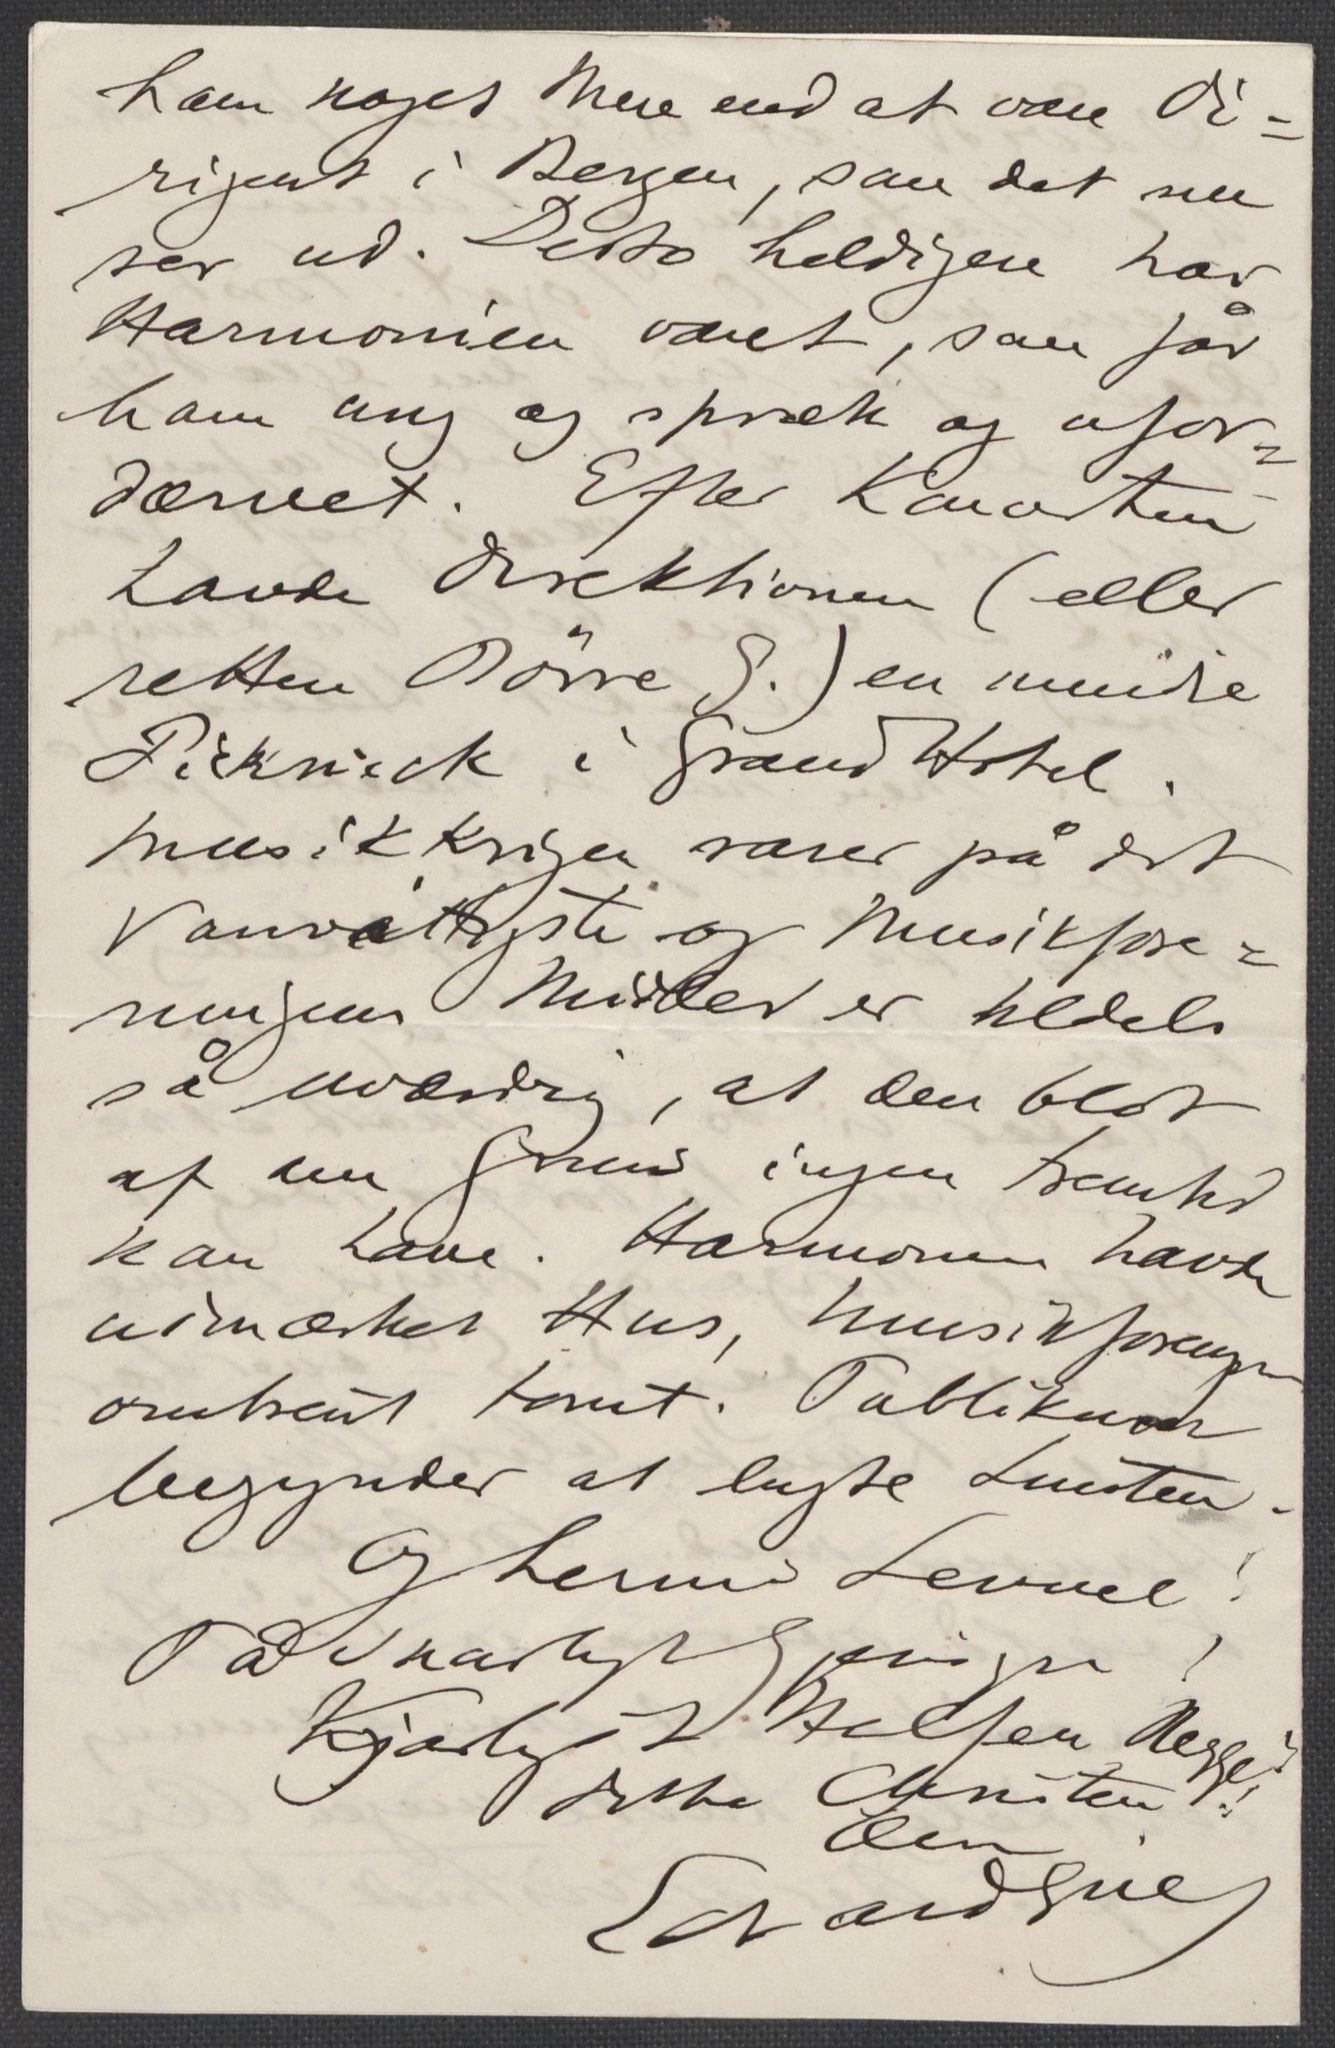 ham noget Mere end at være Di=
rigent i Bergen, som det nu
ser ud. Desto heldigere har
Harmonien været, som får
ham ung og spræk og ufor=
dærvet. Efter Koncerten
havde Direktionen (eller
rettere Börre G.) en mindre
Picknick i Grand Hotel.
Musikkrigen raser på det
Vanvittigste og Musikfore=
ningens Midler er tildels
så uværdig, at den blot
af den Grund ingen Fremtid
kan have. Harmonien havde
udmærket Hus, Musikforeningen
omtrent tomt. Publikum
begynder at lugte Lunten.
Og hermed Levvel!
På snarligt Gjensyn!
Kjærligst Hilsen Begge!
Din
Edvard Grieg